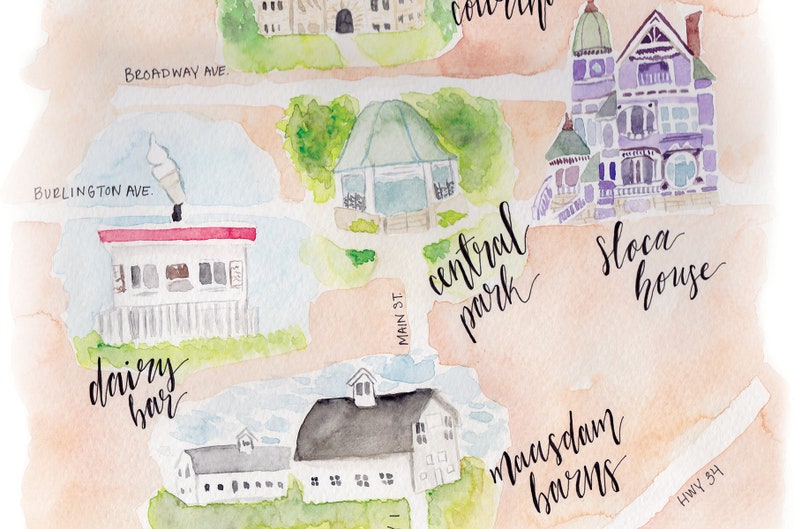 BROADWAY AVE.
BURLINGTON AVE.
central
park
sloca
house
MAIN ST.
dairy
bar
maasdam
barns
HWY 34